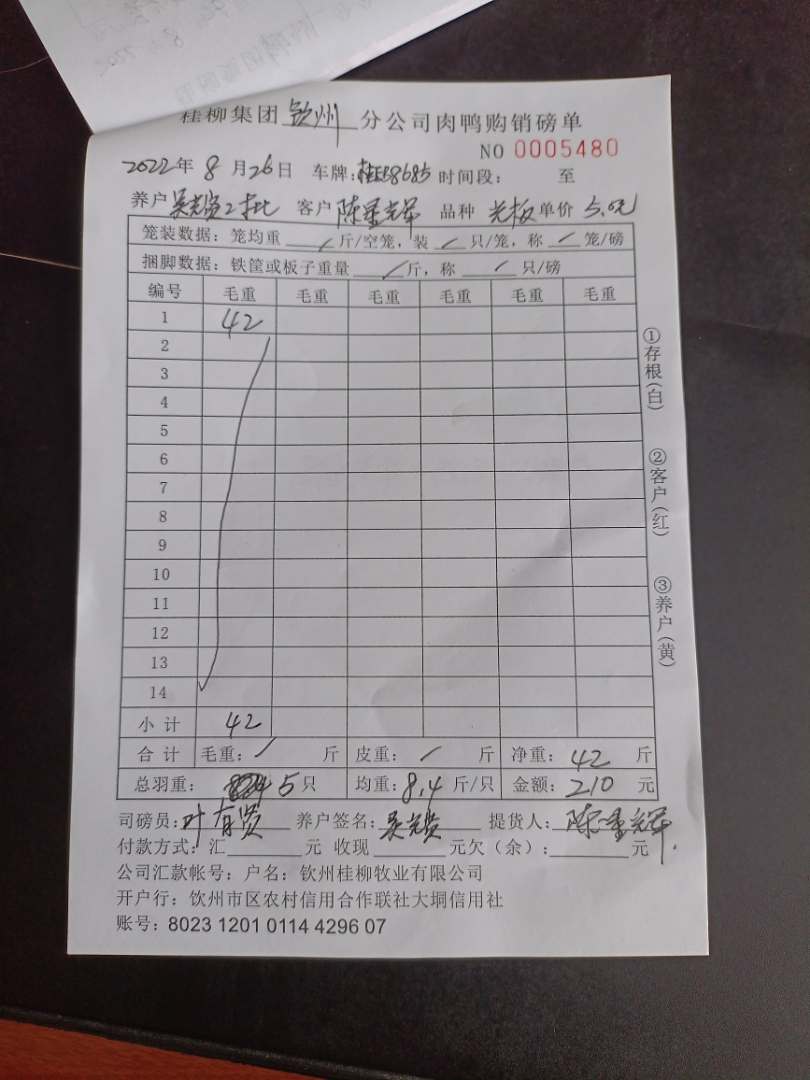 桂柳集团 钦州 分公司肉鸭购销磅单
NO 0005480
2022年 8 月 26日 车牌: 58685 时间段: 至
养户 吴光贤2批 客户 陈星辉 品种 光板 单价 5.0元
笼装数据: 笼均重 / 斤/空笼, 装 / 只/笼, 称 / 笼/磅
捆脚数据: 铁筐或板子重量 / 斤, 称 / 只/磅
编号 毛重 毛重 毛重 毛重 毛重 毛重
1 42
2
3
4
5
6
7
8
9
10
11
12
13
14
小计 42
合计 毛重: / 斤 皮重: / 斤 净重: 42 斤
总羽重: 5只 均重: 8.4 斤/只 金额: 210 元
司磅员: 叶有贤 养户签名: 吴光贤 提货人: 陈星辉
付款方式: 汇 元 收现 元欠(余): 元
公司汇款帐号: 户名: 钦州桂柳牧业有限公司
开户行: 钦州市区农村信用合作联社大垌信用社
账号: 8023 1201 0114 4296 07
①存根(白)
②客户(红)
③养户(黄)